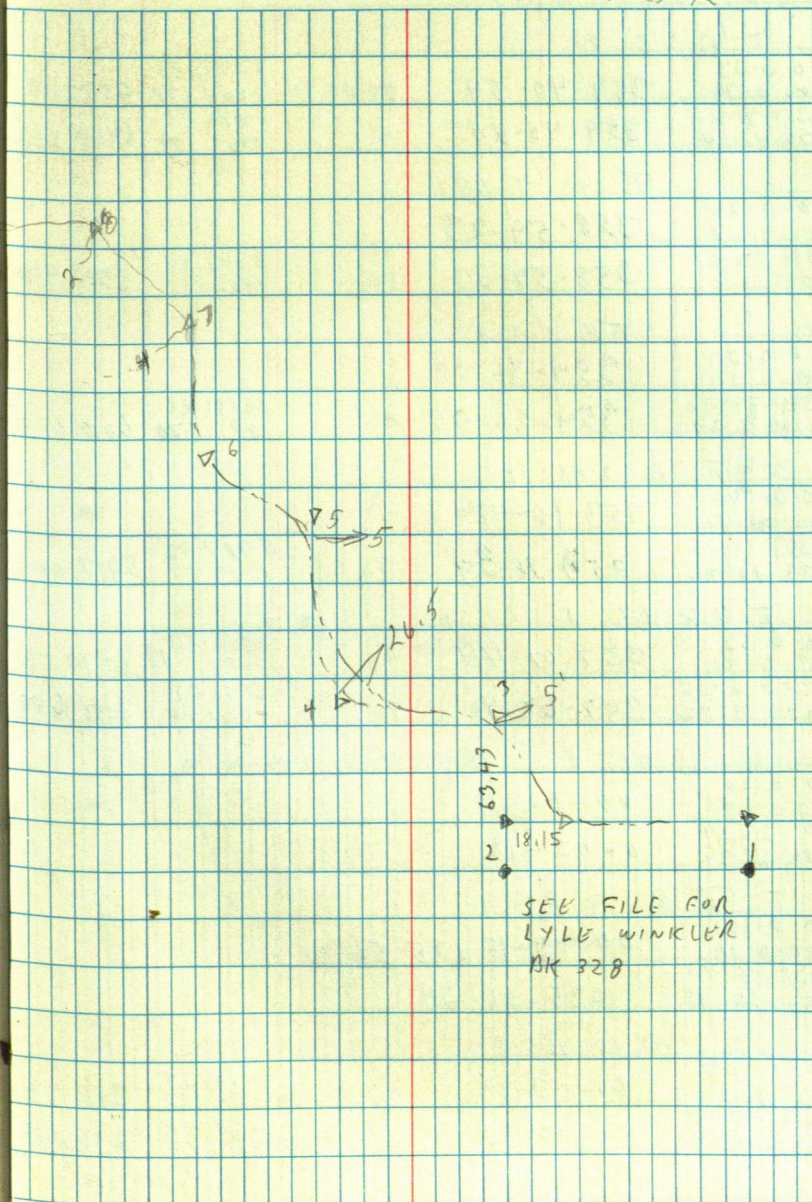 8
2
7
4
6
5
5
26.5
4
3
5'
63.43
18.15
2
1
SEE FILE FOR
LYLE WINKLER
BK 328